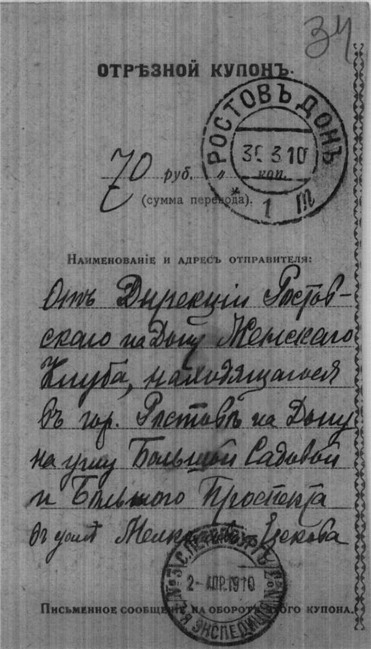 34
ОТРѢЗНОЙ КУПОНЪ.
РОСТОВЪ ДОНЪ
30 3 10
1 т
70 руб. " коп.
(сумма перевода).
Наименованіе и адресъ отправителя:
Отъ Дирекціи Ростов-
скаго на Дону Женскаго
Клуба, находящагося
въ гор. Ростовѣ на Дону
на углу Большой Садовой
и Большого Проспекта
въ домѣ
2- АПР. 1910
ЭКСПЕДИЦІЯ
Письменное сообщеніе на оборотѣ этого купона.